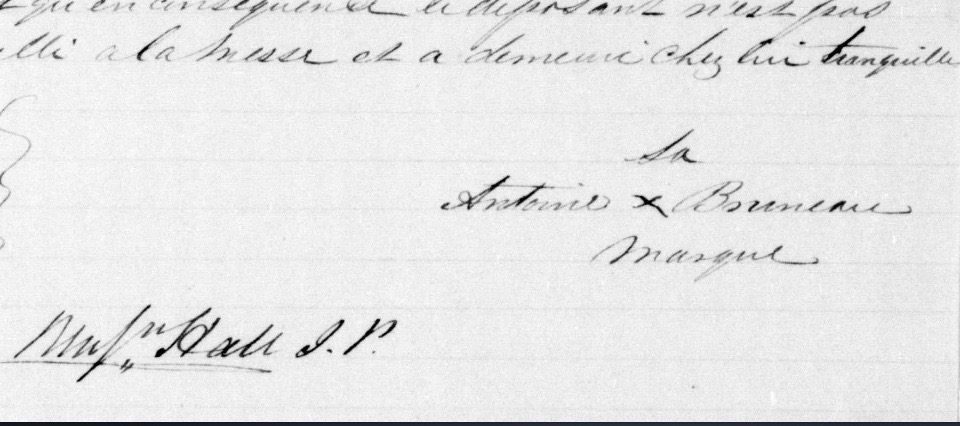 qu'en conséquence le déposant n'est pas
allé a la messe et a demeuré chez lui tranquille
sa
Antoine x Bruneau
marque
Hall J. P.